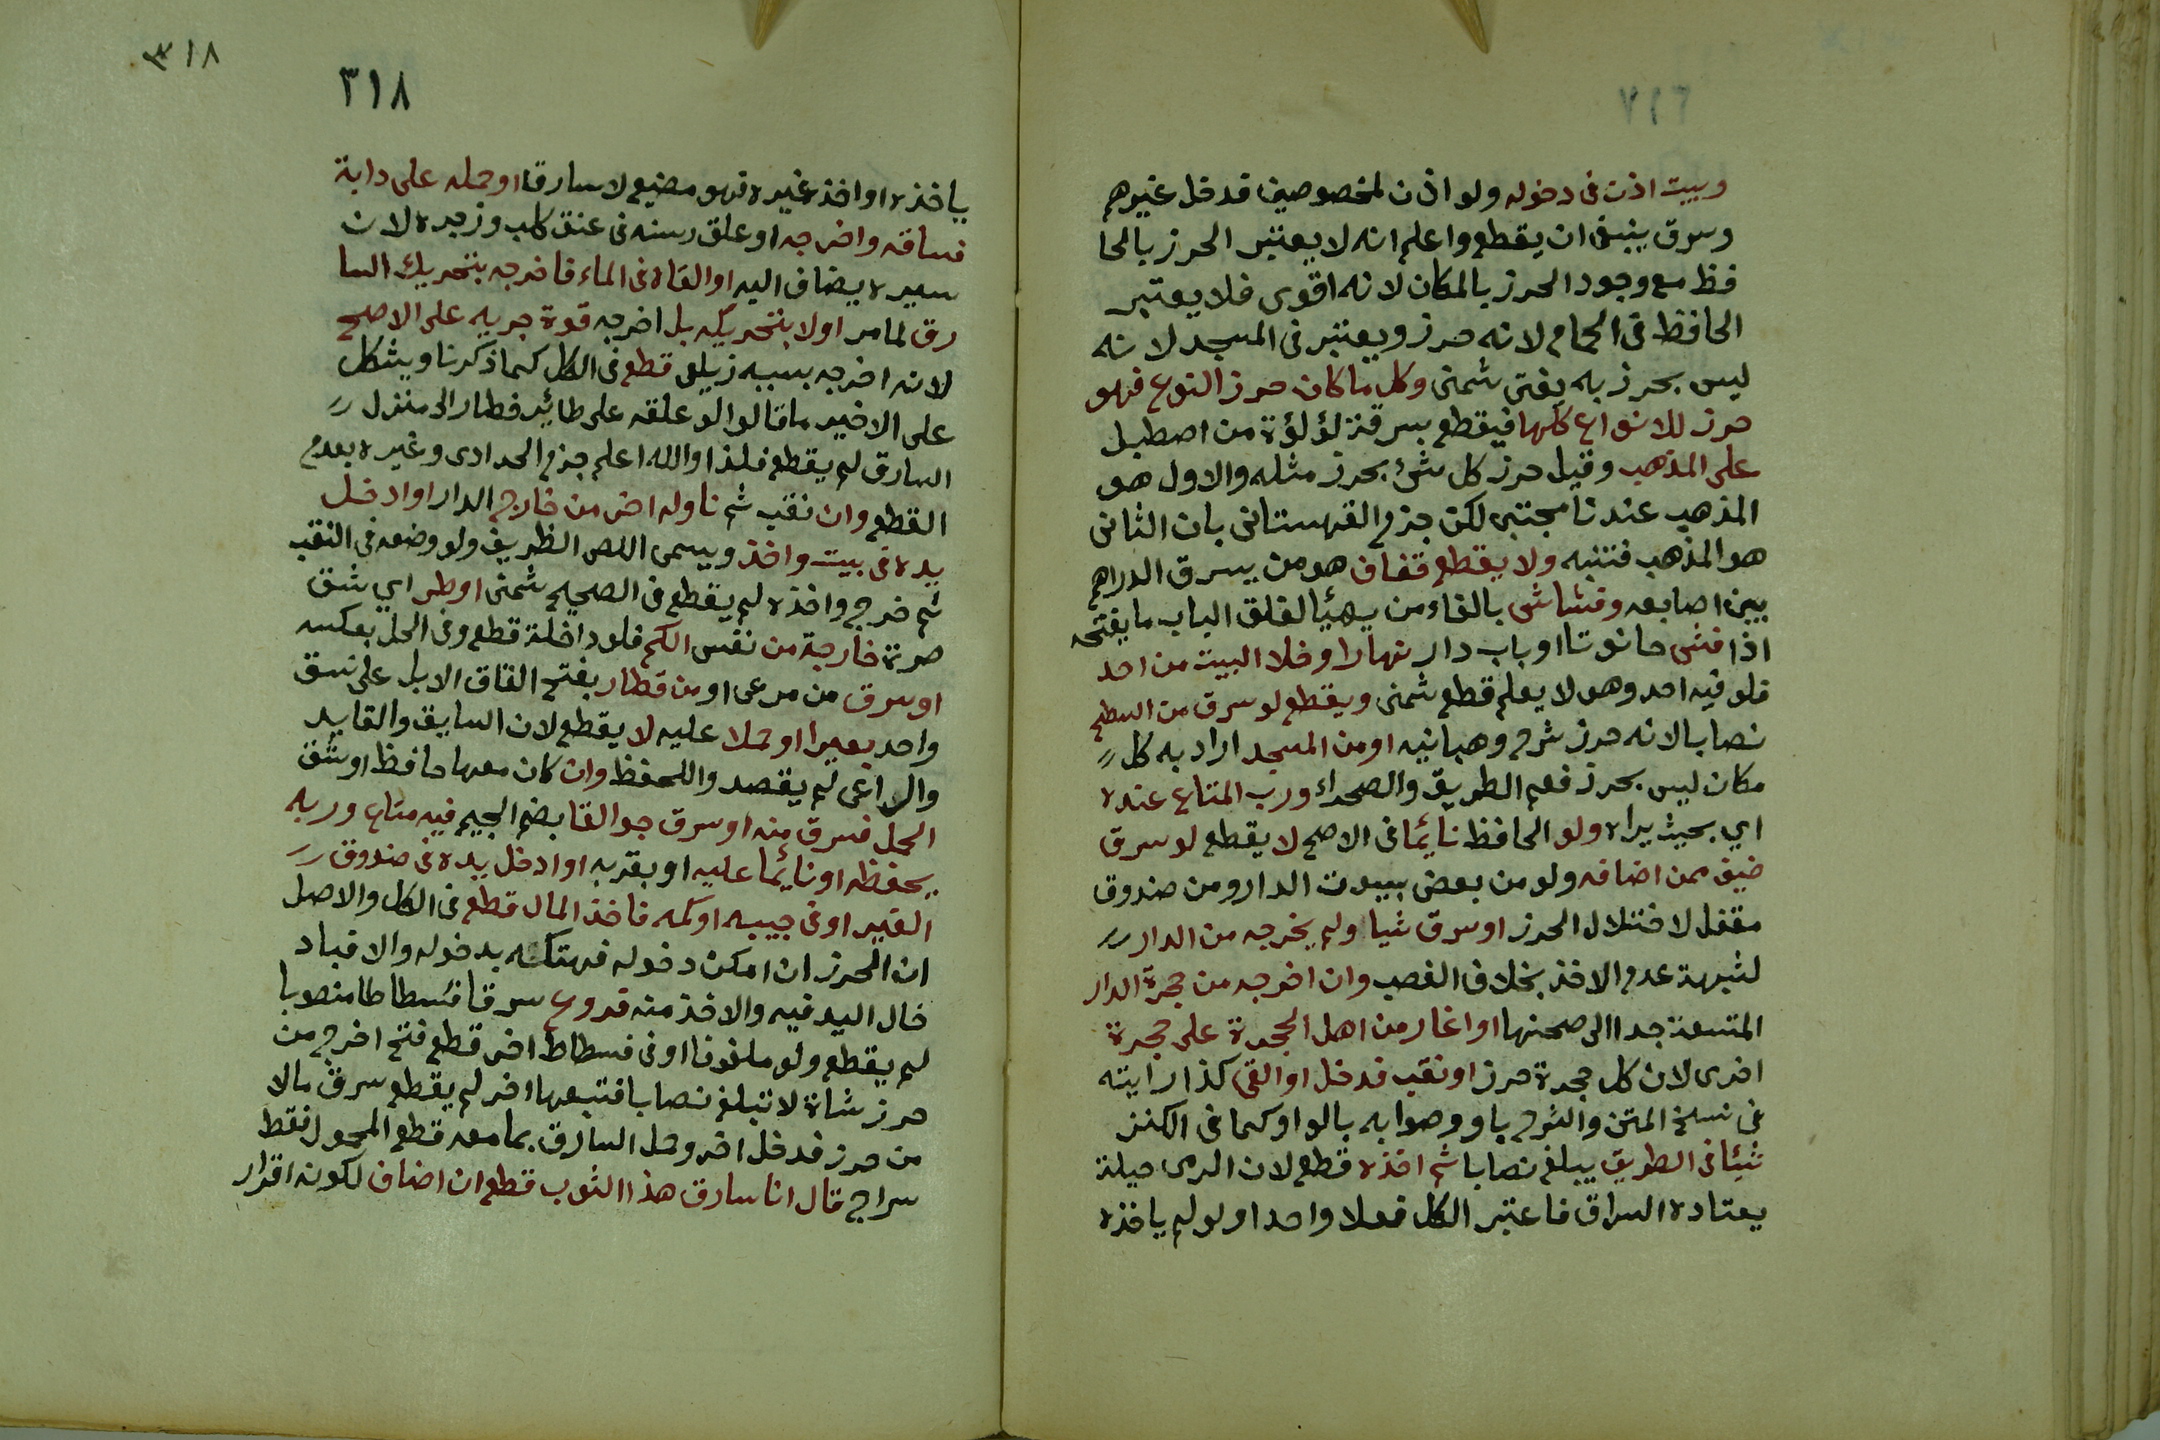 وبيت اذن فى دخوله ولو اذن لمخصوصين فدخل غيرهم
وسرق ينبغى ان يقطع واعلم انه لا يعتبر الحرز بالحا
فظ مع وجود الحرز بالمكان لانه اقوى فلا يعتبر
الحافظ فى الحمام لانه حرز ويعتبر فى المسجد لانه
ليس بحرز به يفتى شمنى وكل ما كان حرز النوع فهو
حرز للانواع كلها فيقطع بسرقة لؤلؤة من اصطبل
على المذهب وقيل حرز كل شئ بحرز مثله والاول هو
المذهب عندنا مجتبى لكن جزم القهستانى بان الثانى
هو المذهب فتنبه ولا يقطع قفاف هو من يسرق الدراهم
بين اصابعه وفشاش بالفاء من يهيئا لفلق الباب ما يفتحه
اذا فش حانوتا او باب دار نهارا وخلا البيت من احد
فلو فيه احد وهو لا يعلم قطع شمنى ويقطع لو سرق من السطح
نصابا لانه حرز شرح وهبانيه او من المسجد اراد به كل
مكان ليس بحرز فعم الطريق والصحراء ورب المتاع عنده
اي بحيث يراه ولو الحافظ نائما فى الاصح لا يقطع لو سرق
ضيف ممن اضافه ولو من بعض بيوت الدار ومن صندوق
مقفل لاختلال الحرز او سرق شيا ولم يخرجه من الدار
لشبهة عدم الاخذ بخلاف الغصب وان اخرجه من حجرة الدار
المتسعة جدا الى صحنها او اغار من اهل الحجرة على حجرة
اخرى لان كل حجرة حرز او نقب فدخل او القى كذا رايته
فى نسخ المتن والشرح باو وصوابه بالواو كما فى الكنز
شيئا فى الطريق يبلغ نصابا ثم اخذه قطع لان الرمى حيلة
يعتاده السراق فاعتبر الكل فعلا واحدا ولو لم ياخذه
٣١٨
٣١٨
ياخذه او اخذه غيره فهو مضيع لا سارقا او حمله على دابة
فساقه واخرجه او علق رسنه فى عنق كلب وزجره لان
سيره يضاف اليه او القاه فى الماء فاخرجه بتحريك السا
رق لما مر او لا بتحريكه بل اخرجه قوة جريه على الاصح
لانه اخرجه بسببه زيلعى قطع فى الكل كما ذكرنا ويشكل
على الاخير ما قالوا لو علقه على طائر فطار الى منزل
السارق لم يقطع فلذا والله اعلم جزم الحدادى وغيره بعدم
القطع وان نقب ثم ناوله اخر من خارج الدار او ادخل
يده فى بيت واخذ ويسمى اللص الظريف ولو وضعه فى النقب
ثم خرج واخذه لم يقطع فى الصحيح شمنى او طر اي شق
صرة خارجة من نفس الكم فلو داخلة قطع وفى الحل بعكسه
او سرق من مرعى او من قطار بفتح القاق الابل على نسق
واحد بعيرا او حملا عليه لا يقطع لان السايق والقايد
والراعى لم يقصد واللحفظ وان كان معها حافظ او شق
الحمل فسرق منه او سرق جوالقا بضم الجيم فيه متاع وربه
يحفظه او نائما عليه او بقربه او ادخل يده فى صندوق
الغير او فى جيبه او كمه فاخذ المال قطع فى الكل والاصل
ان الحرز ان امكن دخوله فهتكه بدخوله والا فباد
خال اليد فيه والاخذ منه فروع سرق فسطاطا منصوبا
لم يقطع ولو ملفوفا او فى فسطاط اخر قطع فتح اخرج من
حرز شاة لا تبلغ نصابا فتبعها اخر لم يقطع سرق مالا
من حرز فدخل اخر وحمل السارق بما معه قطع المحمول فقط
سراج قال انا سارق هذا الثوب قطع ان اضاف لكونه اقرار